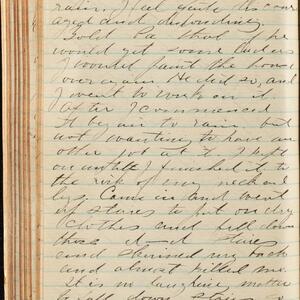 rain, I feel quite dis cour
aged and desponding.
Told Pa that if he
would get some ladders
I would paint the house
over again He did so, and
I went to work on it.
After I commenced
it began to rain but
not wanting to have an
other job at it I kept
on until I finished it to
the risk of my neck and
legs. Came in and went
up stares to put on dry
clothes and fell down
those d—d stares
and skinned my back
and almost killed me.
It is no laughing matter
to fall down stares